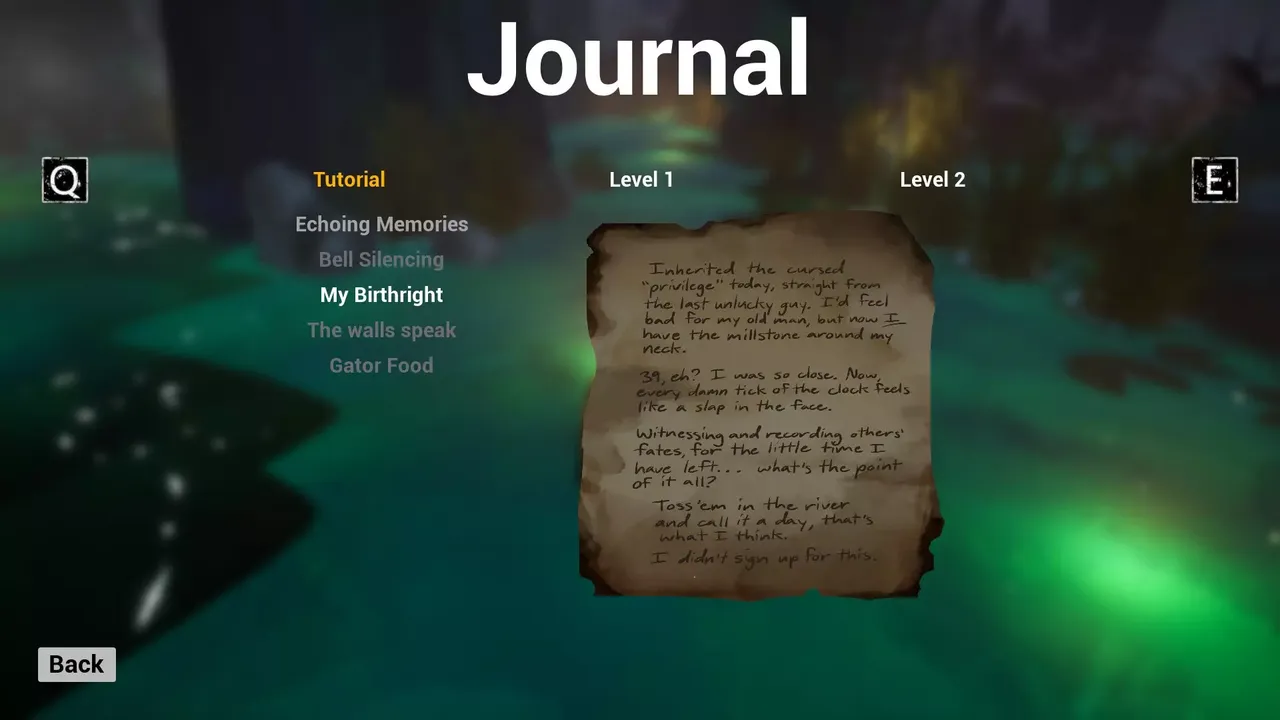 Journal
Q
E
Tutorial
Level 1
Level 2
Echoing Memories
Bell Silencing
My Birthright
The walls speak
Gator Food
Inherited the cursed
"privilege" today, straight from
the last unlucky guy. I'd feel
bad for my old man, but now I
have the millstone around my
neck.
39, eh? I was so close. Now,
every damn tick of the clock feels
like a slap in the face.
Witnessing and recording others'
fates, for the little time I
have left... what's the point
of it all?
Toss 'em in the river
and call it a day, that's
what I think.
I didn't sign up for this.
Back